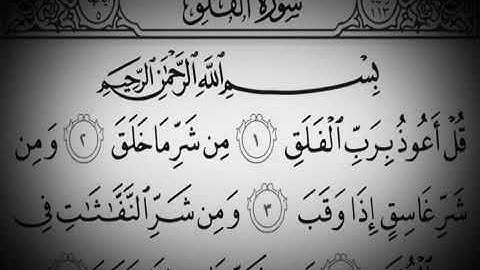 سُورَةُ الْفَلَقِ
بِسْمِ اللَّهِ الرَّحْمَٰنِ الرَّحِيمِ
قُلْ أَعُوذُ بِرَبِّ ٱلْفَلَقِ ١ مِن شَرِّ مَا خَلَقَ ٢ وَمِن
شَرِّ غَاسِقٍ إِذَا وَقَبَ ٣ وَمِن شَرِّ ٱلنَّفَّٰثَٰتِ فِى